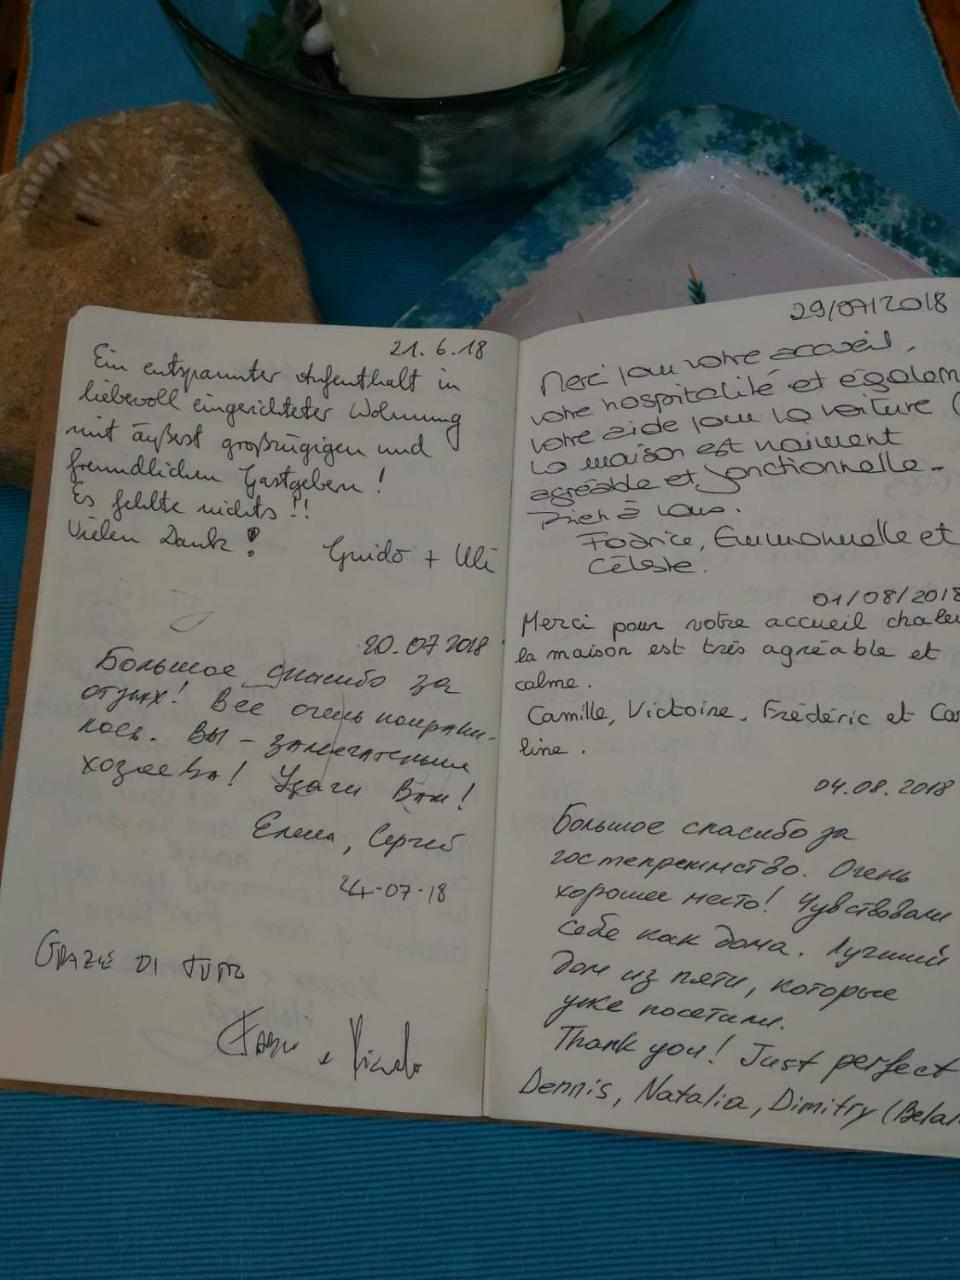 21.6.18
Ein entspannter Aufenthalt in
liebevoll eingerichteter Wohnung
mit äußerst großzügigen und
freundlichen Gastgebern!
Es fehlte nichts!!
Vielen Dank!
Guido + Uli
20.07.2018
Большое спасибо за
отдых! Все очень понрави-
лось. Вы - замечательные
хозяева! Удачи Вам!
Елена, Сергей
24-07-18
GRAZIE DI TUTTO
29/07/2018
Merci pour votre accueil,
votre hospitalité et égalem
votre aide pour la voiture (
La maison est vraiment
agréable et fonctionnelle-
Bien à vous.
Fabrice, Emmanuelle et
Céleste.
01/08/2018
Merci pour votre accueil chaleu
la maison est très agréable et
calme.
Camille, Victoire, Frédéric et Caro
line.
04.08.2018
Большое спасибо за
гостеприимство. Очень
хорошее место! Чувствовали
себя как дома. Лучший
дом из пяти, которые
уже посетили.
Thank you! Just perfect
Dennis, Natalia, Dimitry (Belar